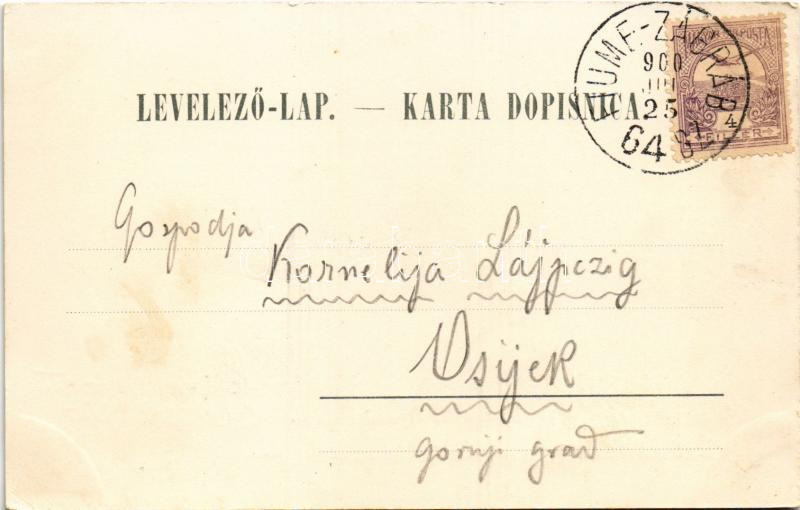 LEVELEZŐ-LAP. — KARTA DOPISNICA.
FIUME-ZÁGRÁB
900
25
64
4
FILLÉR
Gospodja
Kornelija Lájpczig
Osijek
gornji grad